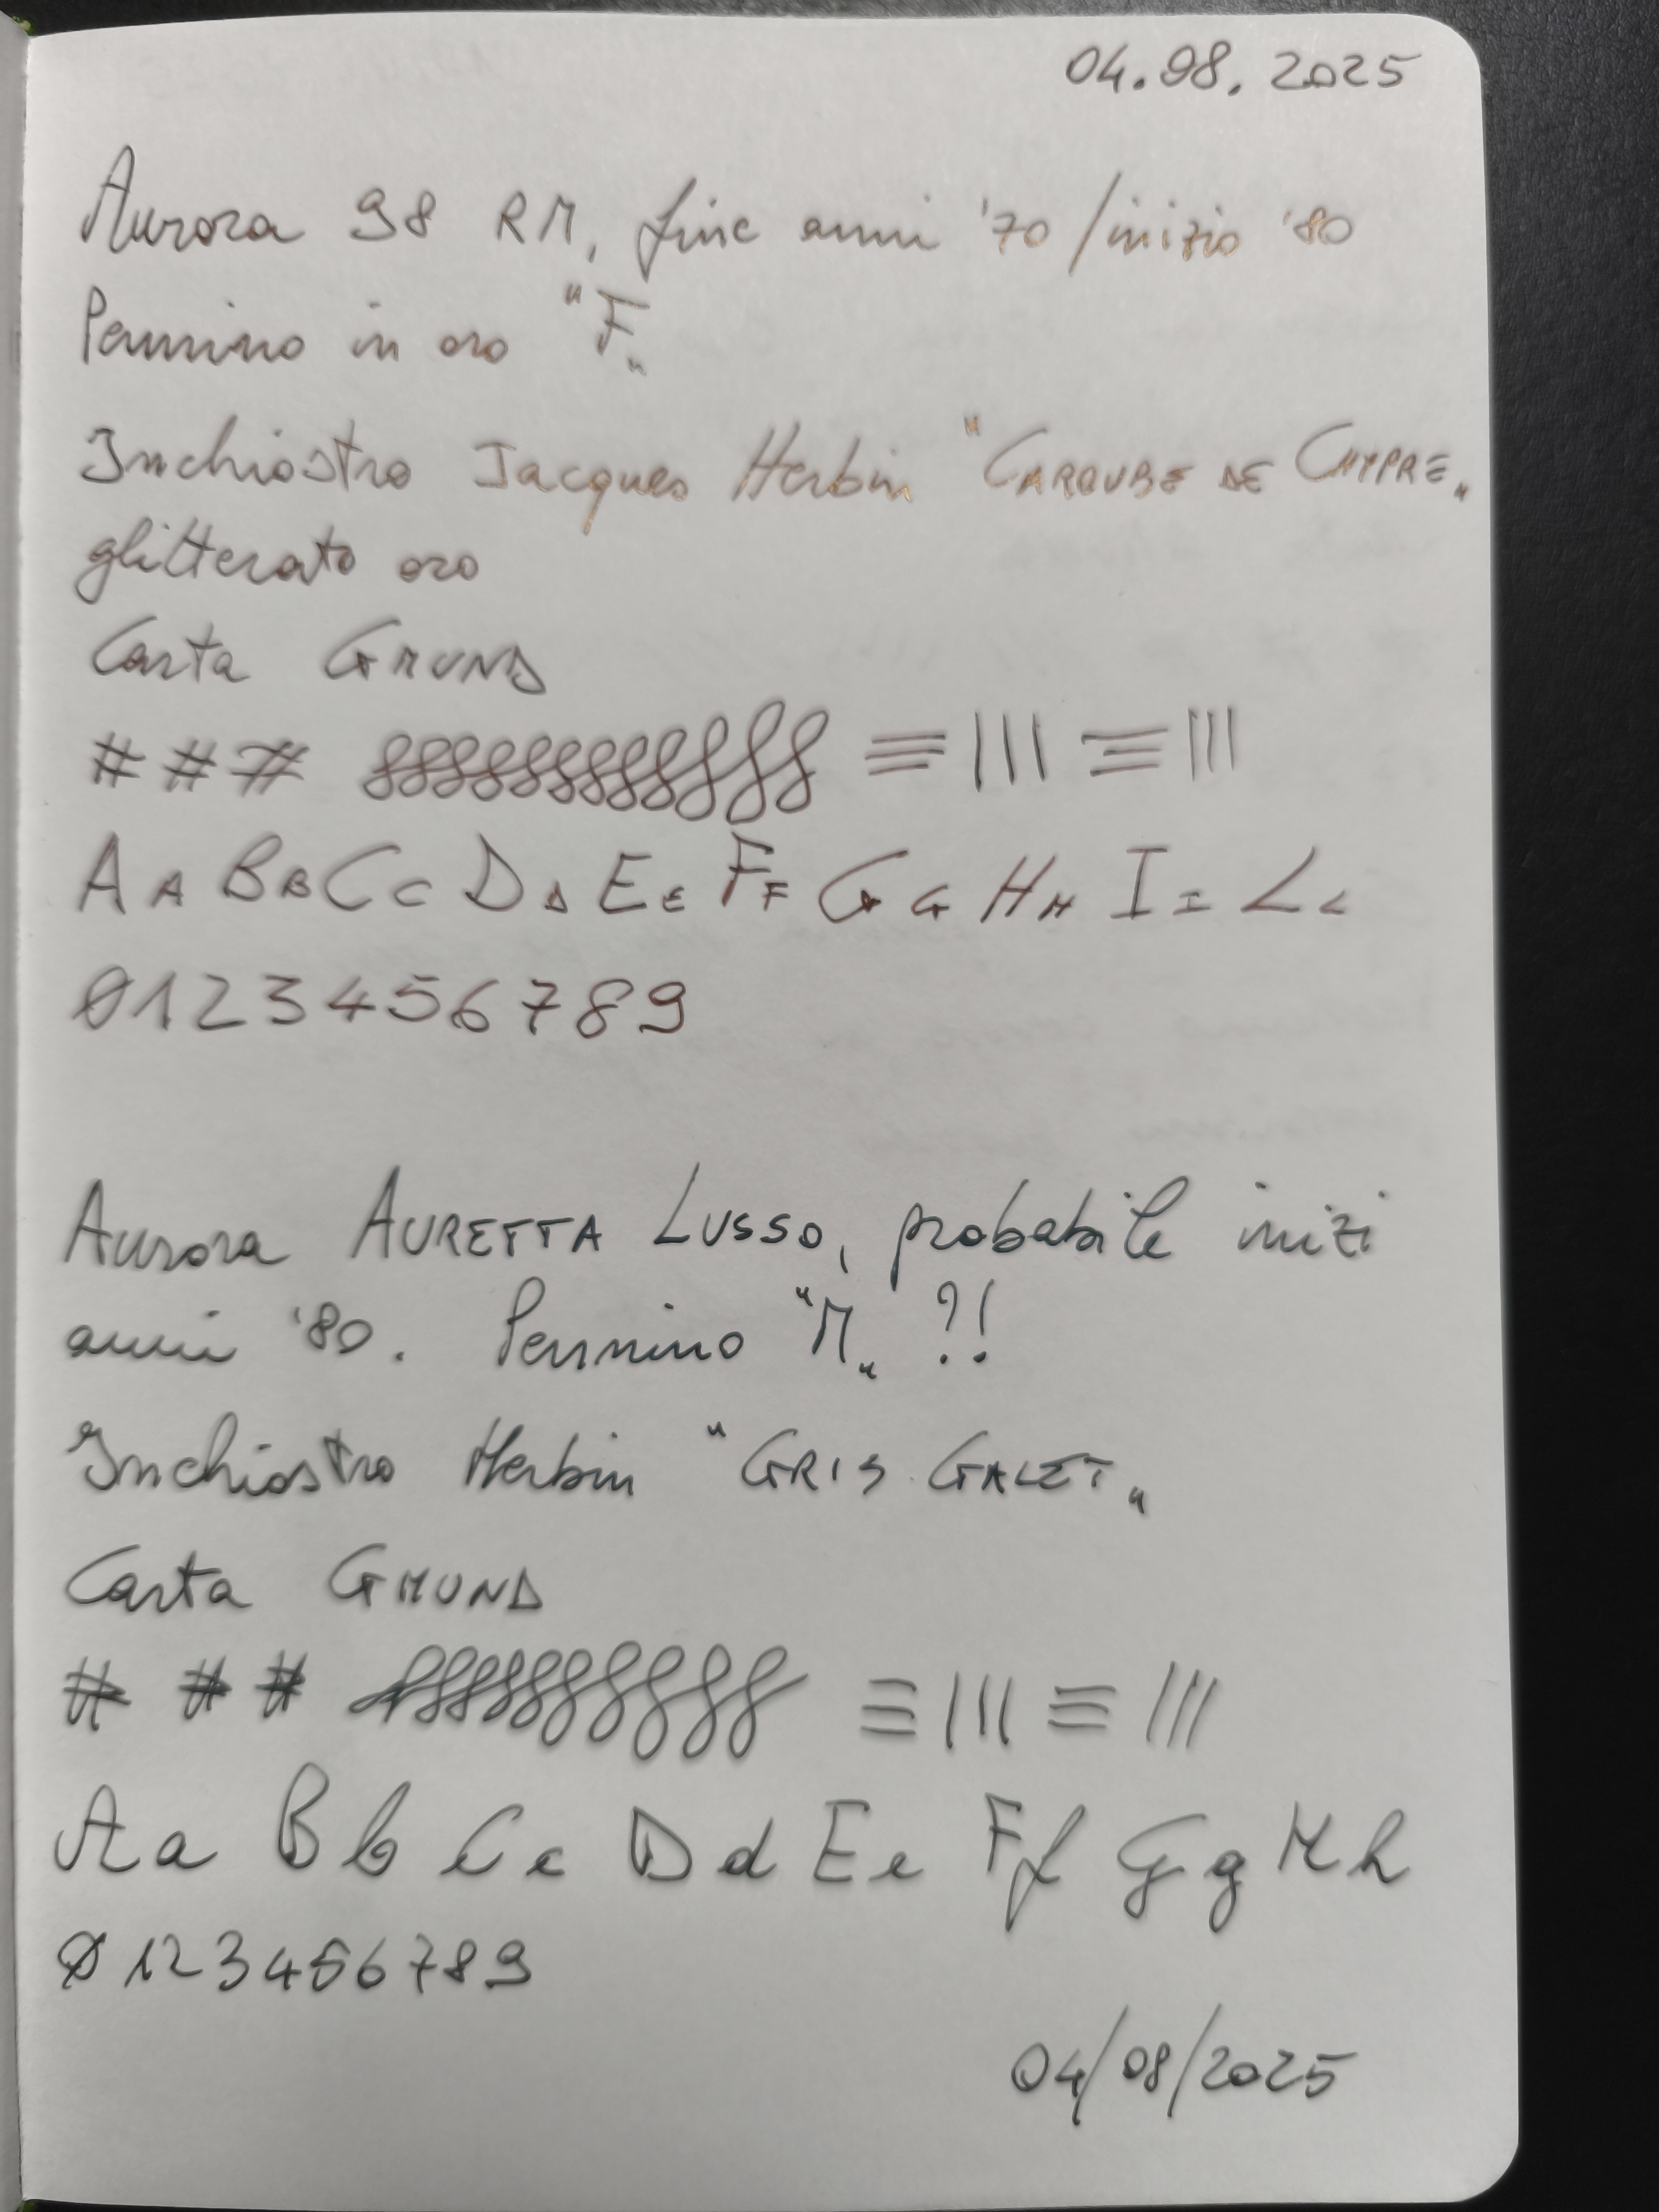 04.08.2025
Aurora 98 RM, fine anni '70/inizio '80
Pennino in oro "F"
Inchiostro Jacques Herbin "CAROUBE DE CHYPRE"
glitterato oro
Carta GMUND
# # # ≡ ||| ≡ |||
A A B B C C D D E E F F G G H H I I L L
0123456789
Aurora AURETTA LUSSO, probabile inizi
anni '80. Pennino "M" ?!
Inchiostro Herbin "GRIS GALET"
Carta GMUND
# # # ≡ ||| ≡ |||
Aa Bb Cc Dd Ee Ff Gg Hh
0123456789
04/08/2025